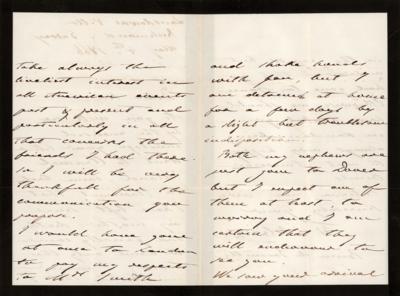 take always the
liveliest interest in
all American events
past & present and
particularly in all
that concerns the
friends I had there.
so I will be very
thankfull for the
communication you
propose.
I would have gone
at once to London
to pay my respects
to Mrs Smith
and shake hands
with you, but I
am detained at home
for a few days by
a slight but troublesome
indisposition.
Both my nephews are
just gone to Dover
but I expect one of
them at least, to
morning and I am
certain that they
will endeavour to
see you.
We saw your arrival